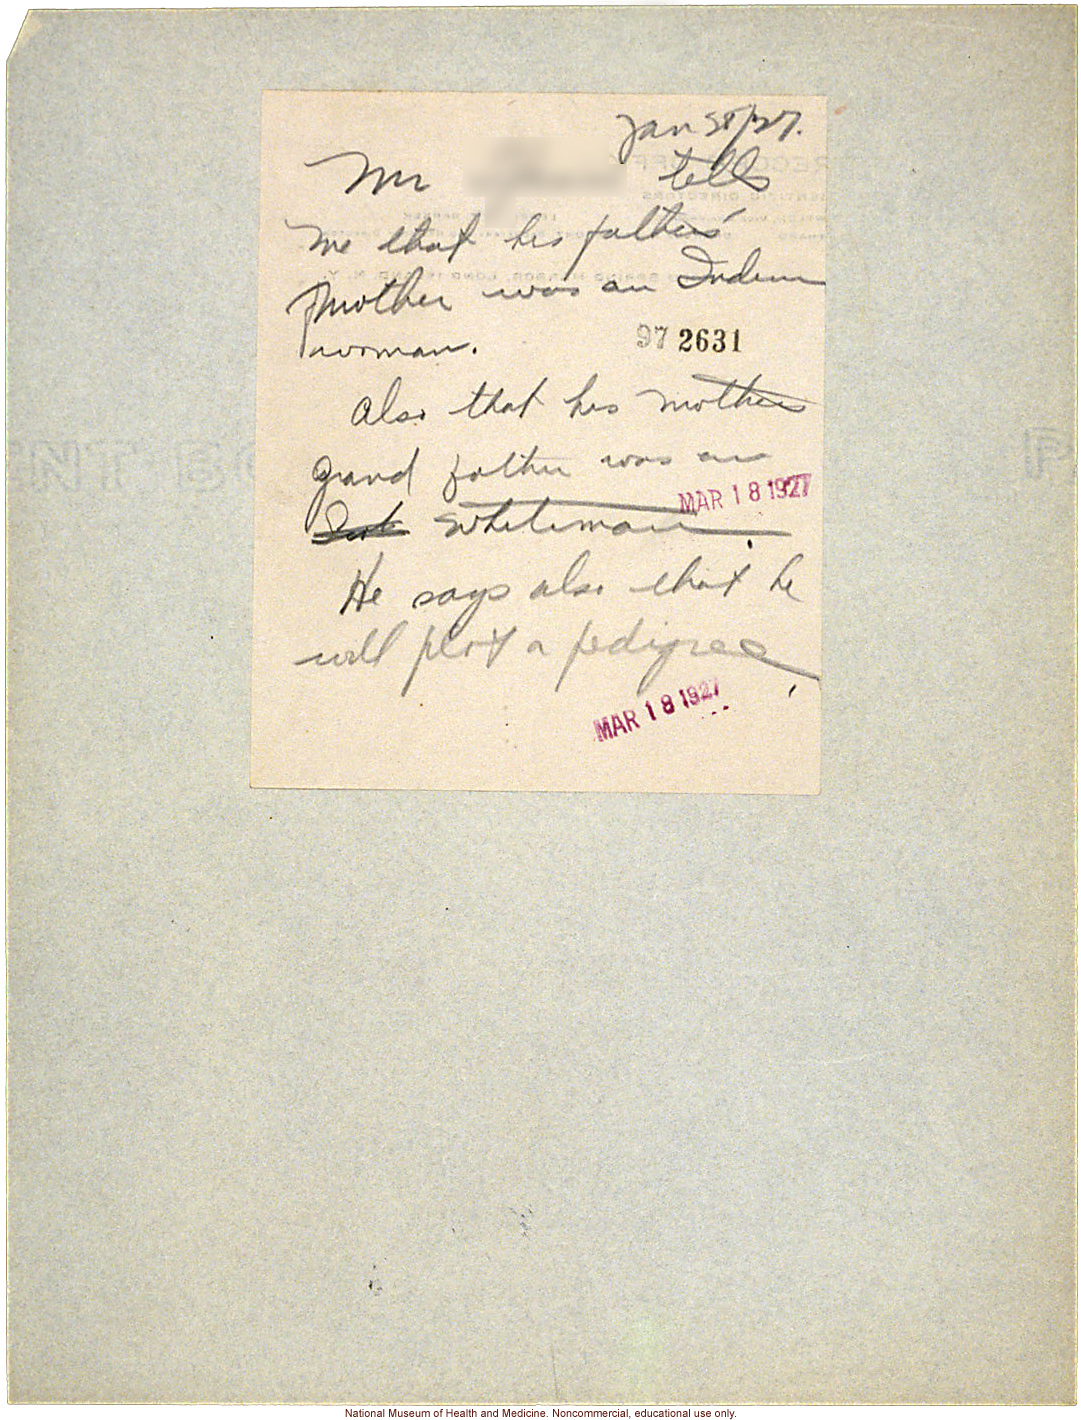 Jan 28/27.
Mr tells
me that his father's
mother was an Indian
woman.
97 2631
Also that his mothers
grand father was an
whiteman.
MAR 18 1927
He says also that he
will plot a pedigree
MAR 18 1927
National Museum of Health and Medicine. Noncommercial, educational use only.